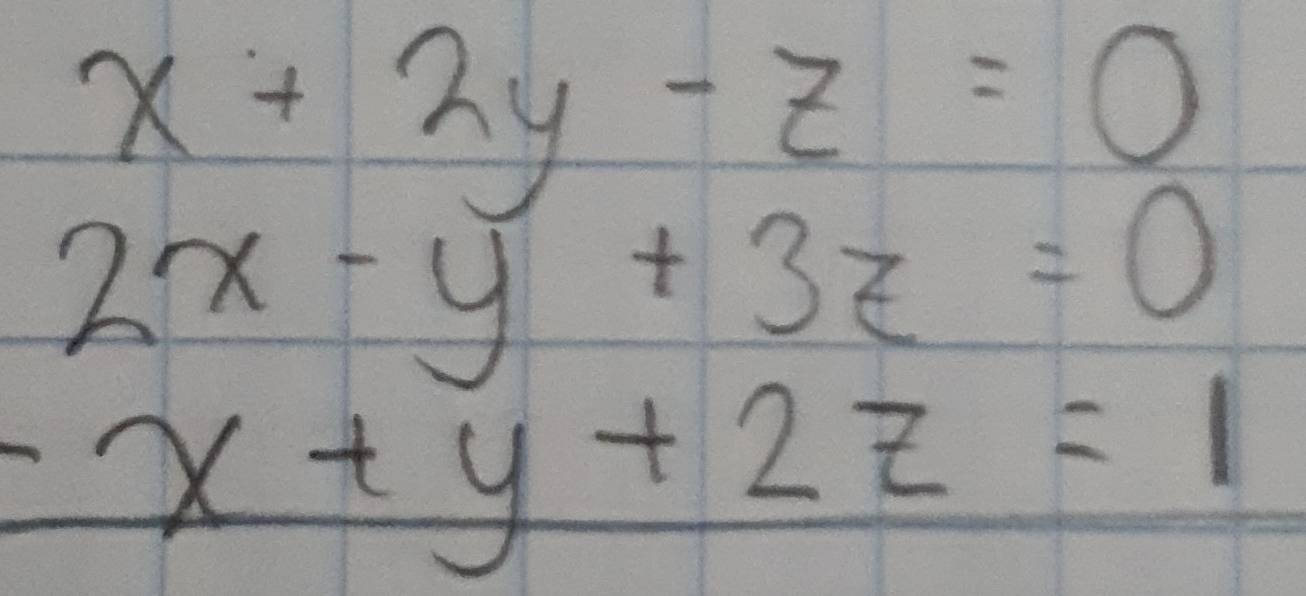 x + 2y - z = 0
2x - y + 3z = 0
- x + y + 2z = 1